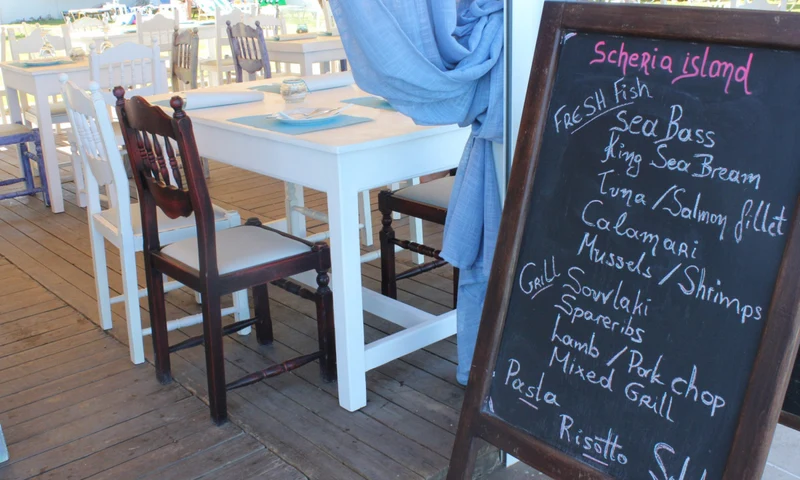 Scheria island
FRESH Fish
Sea Bass
King Sea Bream
Tuna / Salmon fillet
Calamari
Mussels / Shrimps
Grill Souvlaki
Spareribs
Lamb / Pork chop
Mixed Grill
Pasta
Risotto